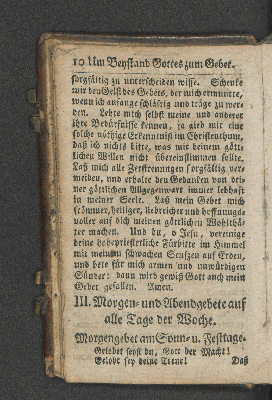 10 Um Beystand Gottes zum Gebet.
sorgfältig zu unterscheiden wisse. Schenke
mir den Geist des Gebets, der mich ermuntre,
wenn ich anfange schläfrig und träge zu wer-
den. Lehre mich selbst meine und anderer
ihre Bedürfnisse kennen, ja gieb mir eine
solche nöthige Erkenntniß im Christenthume,
daß ich nichts bitte, was mit deinem gött-
lichen Willen nicht übereinstimmen sollte.
Laß mich alle Zerstreuungen sorgfältig ver-
meiden, und erhalte den Gedanken von dei-
ner göttlichen Allgegenwart immer lebhaft
in meiner Seele. Laß mein Gebet mich
frömmer, heiliger, liebreicher und hoffnungs-
voller auf dich meinen göttlichen Wohlthä-
ter machen. Und du, o Jesu, vereinige
deine hohepriesterliche Fürbitte im Himmel
mit meinem schwachen Seufzen auf Erden,
und bete für mich armen und unwürdigen
Sünder: dann wird gewiß Gott auch mein
Gebet gefallen. Amen.
III. Morgen- und Abendgebete auf
alle Tage der Woche.
Morgengebet am Sonn- u. Festtage.
Gelobet seyst du, Gott der Macht!
Gelobt sey deine Treue!
Daß